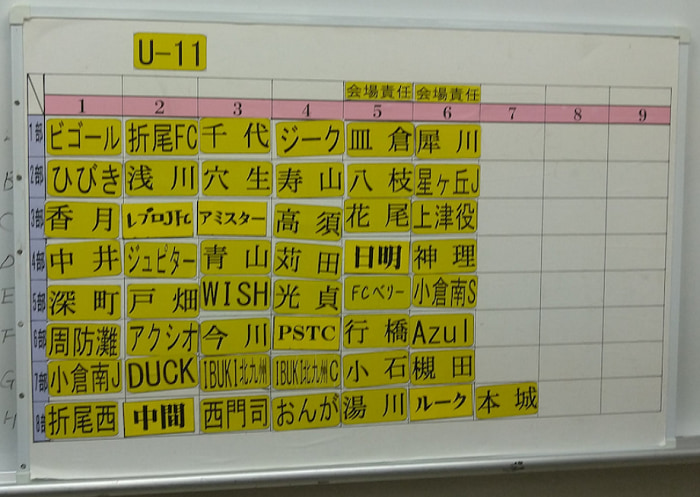 U-11
会場責任 会場責任
1 2 3 4 5 6 7 8 9
1部 ビゴール 折尾FC 千代 ジーク 皿倉 犀川
B 2部 ひびき 浅川 穴生 寿山 八枝 星ヶ丘J
C 3部 香月 レプロJFc アミスター 高須 花尾 上津役
D 4部 中井 ジュピター 青山 苅田 日明 神理
E 5部 深町 戸畑 WISH 光貞 FCベリー 小倉南S
F 6部 周防灘 アクシオ 今川 PSTC 行橋 Azul
G 7部 小倉南J DUCK IBUKI北九州 IBUKI北九州C 小石 槻田
H 8部 折尾西 中間 西門司 おんが 湯川 ルーク 本城